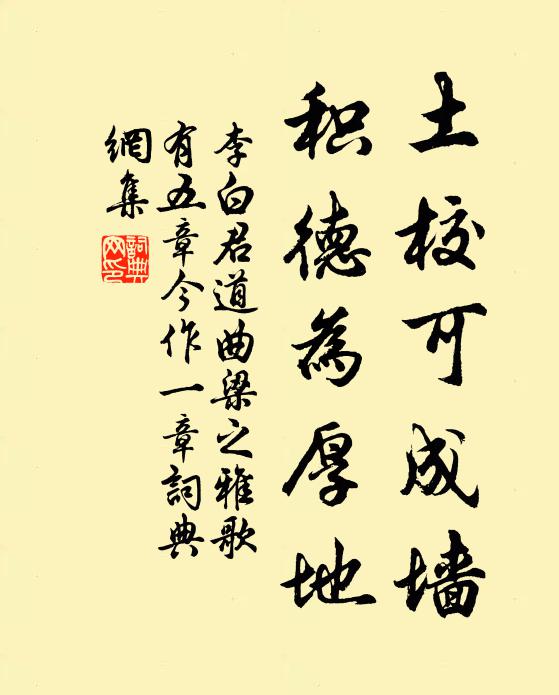 土校可成墙
积德为厚地
李白君道曲梁之雅歌
有五章今作一章詞典
網集
詞典
网印